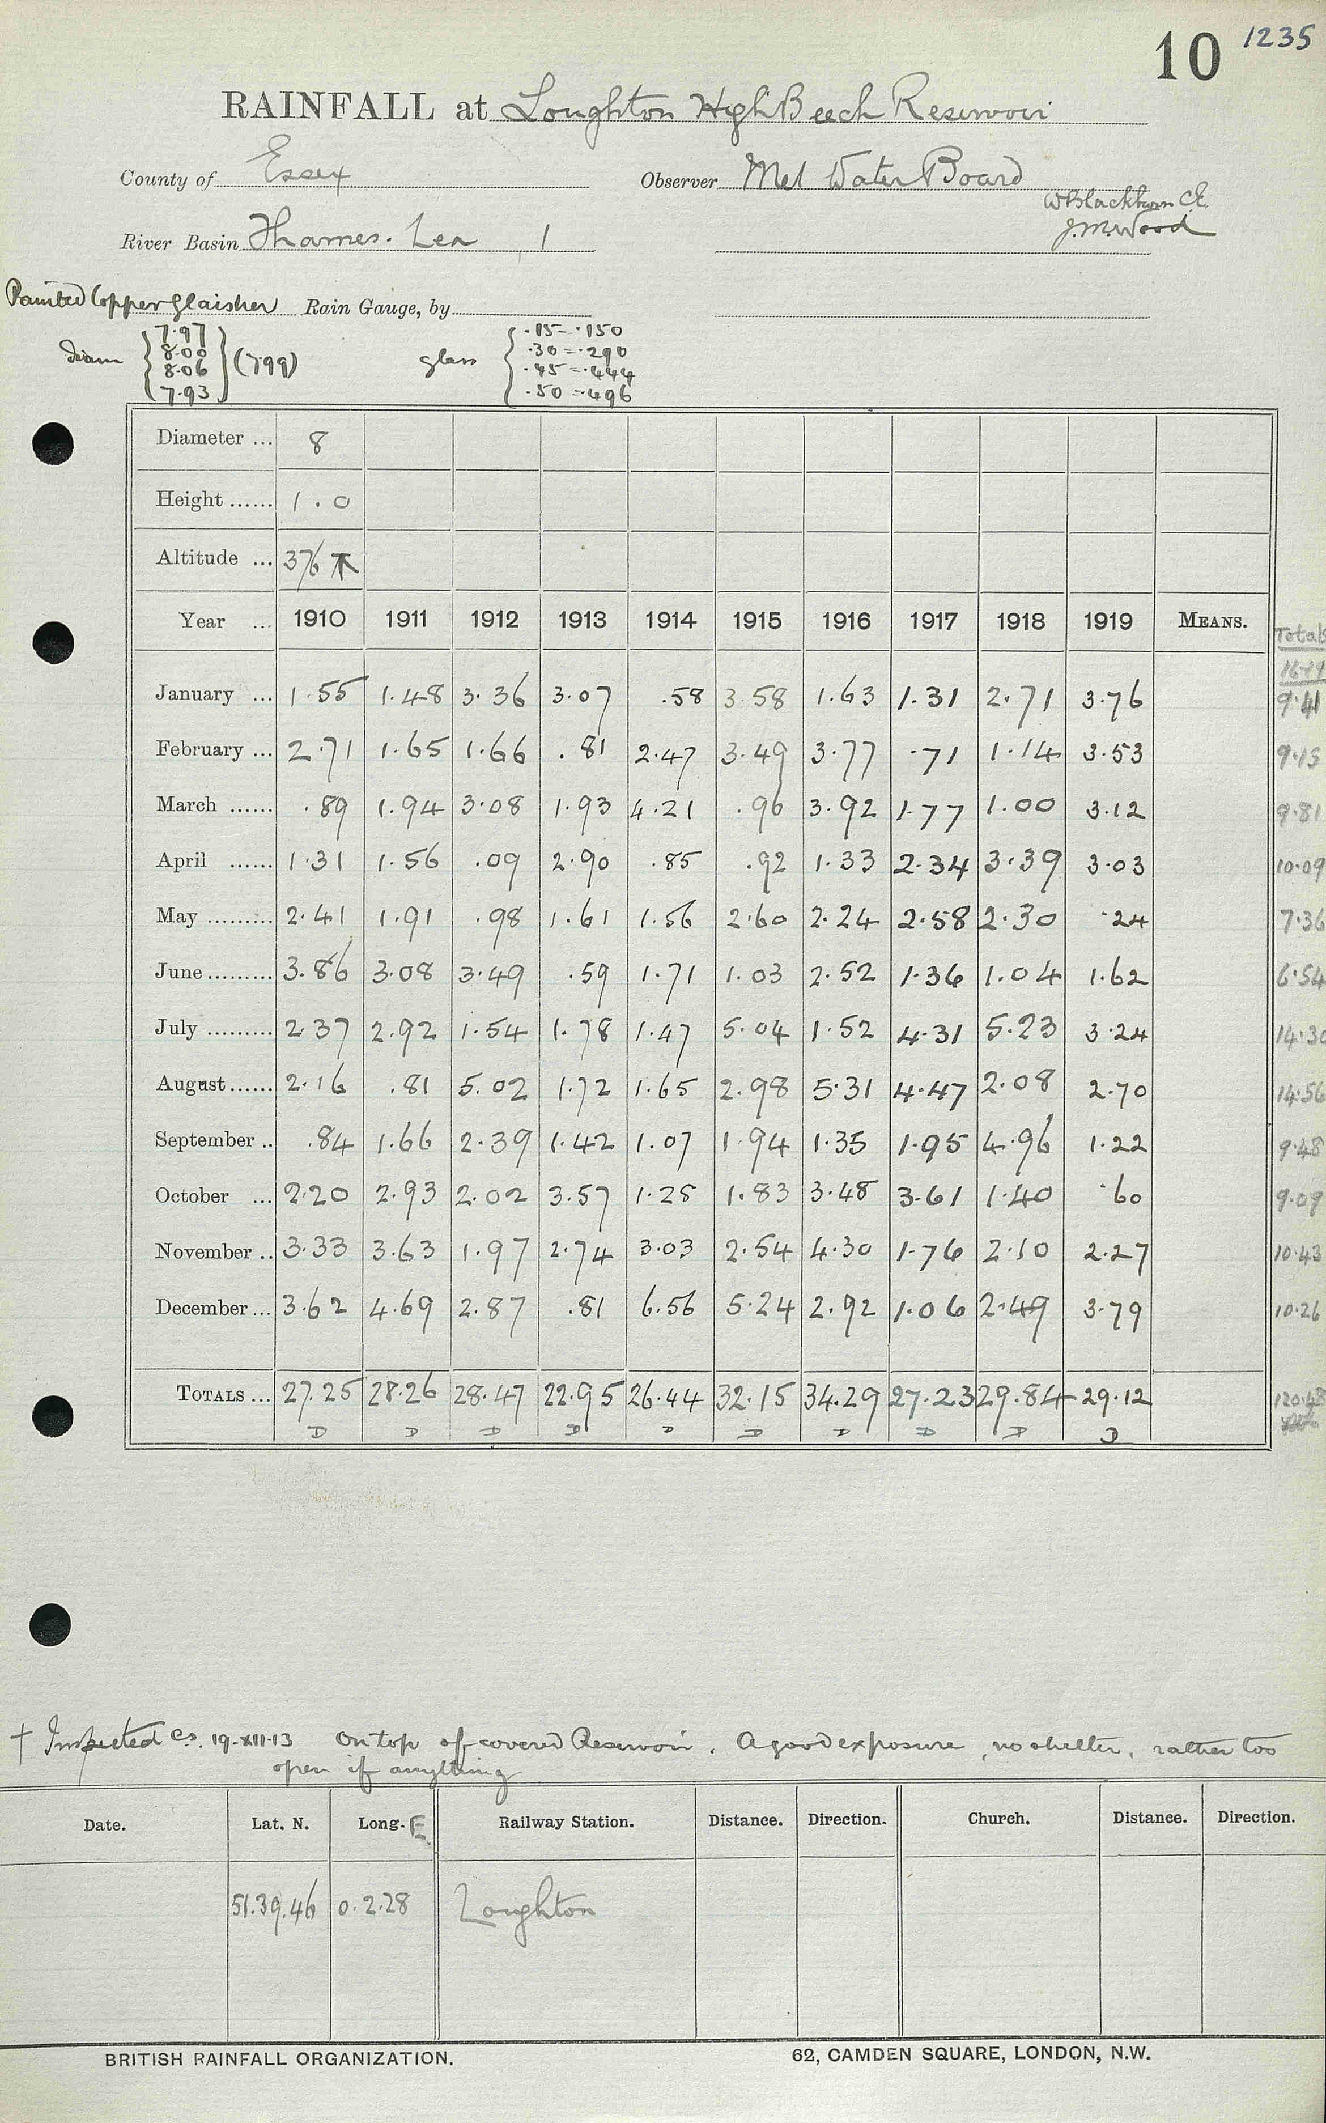 10 1235
RAINFALL at Loughton High Beech Reservoir
County of Essex Observer Met Water Board
W Blackburn C.E.
River Basin Thames. Lea 1 J.M. Wood
Painted Copper Glaisher Rain Gauge, by
diam { 7.97 8.00 8.06 7.93 } (799) glass { .15=.150 .30=.290 .45=.444 .50=.496
Diameter ... 8
Height ...... 1.0
Altitude ... 376
Year ... 1910 1911 1912 1913 1914 1915 1916 1917 1918 1919 MEANS. Totals
16-19
January ... 1.55 1.48 3.36 3.07 .58 3.58 1.63 1.31 2.71 3.76 9.41
February ... 2.71 1.65 1.66 .81 2.47 3.49 3.77 .71 1.14 3.53 9.15
March ...... .89 1.94 3.08 1.93 4.21 .96 3.92 1.77 1.00 3.12 9.81
April ...... 1.31 1.56 .09 2.90 .85 .92 1.33 2.34 3.39 3.03 10.09
May ......... 2.41 1.91 .98 1.61 1.56 2.60 2.24 2.58 2.30 .24 7.36
June ......... 3.86 3.08 3.49 .59 1.71 1.03 2.52 1.36 1.04 1.62 6.54
July ......... 2.37 2.92 1.54 1.78 1.47 5.04 1.52 4.31 5.23 3.24 14.30
August ...... 2.16 .81 5.02 1.72 1.65 2.98 5.31 4.47 2.08 2.70 14.56
September .. .84 1.66 2.39 1.42 1.07 1.94 1.35 1.95 4.96 1.22 9.48
October ... 2.20 2.93 2.02 3.57 1.28 1.83 3.48 3.61 1.40 .60 9.09
November .. 3.33 3.63 1.97 2.74 3.03 2.54 4.30 1.76 2.10 2.27 10.43
December ... 3.62 4.69 2.87 .81 6.56 5.24 2.92 1.06 2.49 3.79 10.26
TOTALS ... 27.25 28.26 28.47 22.95 26.44 32.15 34.29 27.23 29.84 29.12 120.48
D D D D D D D D D D
† Inspected 19-XII-13 On top of covered Reservoir. A good exposure, no shelter, rather too
open if anything
Date. Lat. N. Long. E Railway Station. Distance. Direction. Church. Distance. Direction.
51.39.46 0.2.28 Loughton
BRITISH RAINFALL ORGANIZATION. 62, CAMDEN SQUARE, LONDON, N.W.